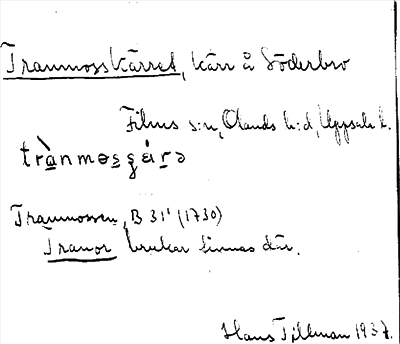 Tranmosskärret, kärr å Söderbro
Films s:n, Olands h:d, Uppsala l.
trànmǝsçä́rǝ
Tranmossen, B 31¹ (1730)
Tranor brukar finnas där.
Hans Tillman 1937.